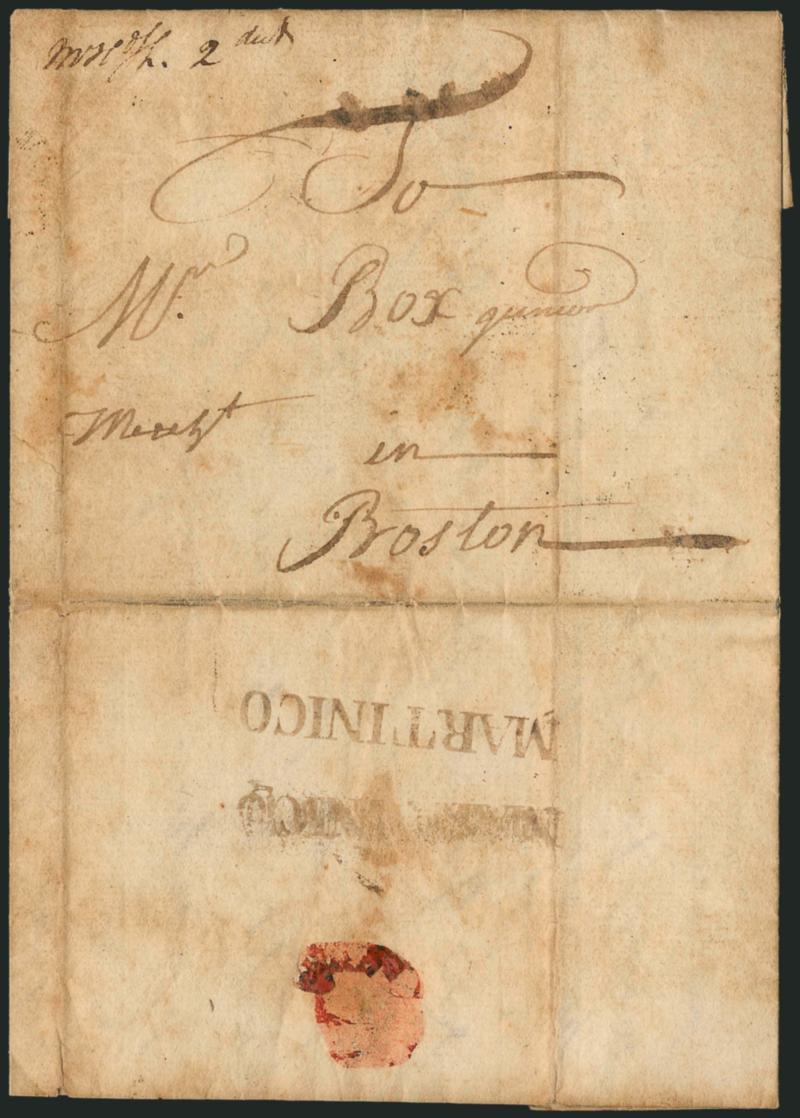 2 dwt
To
Mr. Box junior
Mercht
in
Boston
MARTINICO